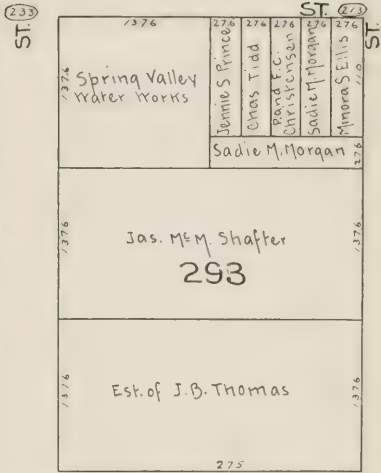 233
ST.
ST.
213
ST.
1376
276
276
276
276
276
1376
Spring Valley
Water Works
Jennie S Prince
Chas Tidd
P. and F.C.
Christensen
Sadie M. Morgan
Minora S Ellis
110
Sadie M. Morgan
276
1376
Jas. McM. Shafter
293
1376
1376
Est. of J.B. Thomas
1376
275